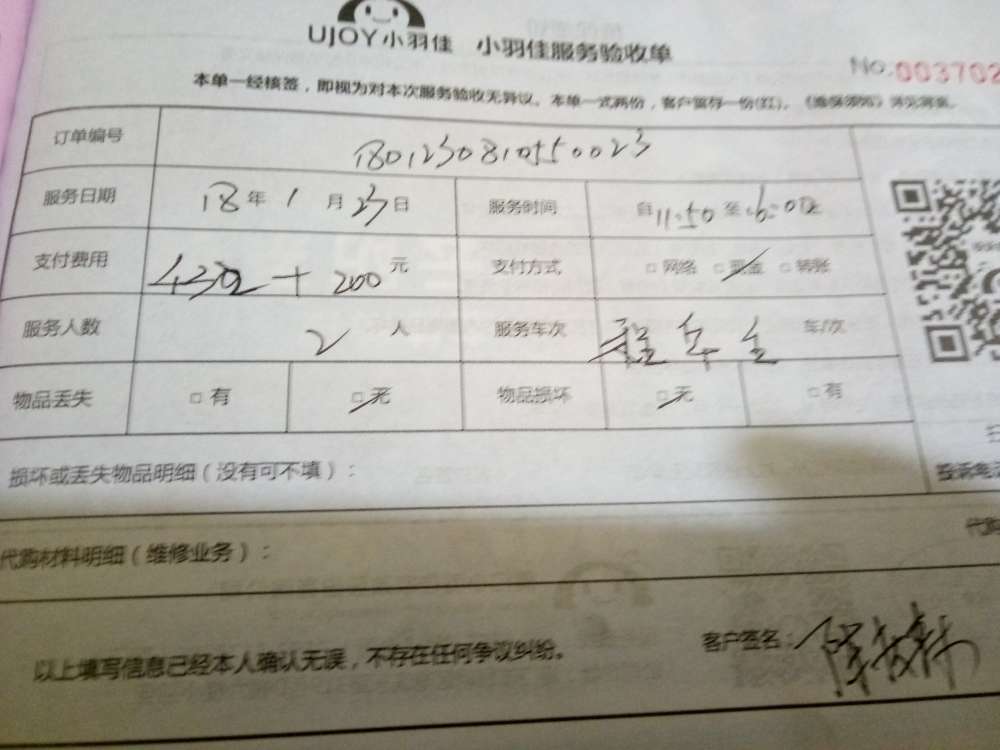 UJOY小羽佳 小羽佳服务验收单
No.003702
本单一经核签，即视为对本次服务验收无异议。本单一式两份，客户留存一份(红)。《维保须知》详见背面。
订单编号 1801230810550023
服务日期 18年1月23日 服务时间 自11:50至16:00
支付费用 +200元 支付方式 □网络 □现金 □转账
服务人数 2人 服务车次 车/次
物品丢失 □有 □无 物品损坏 □无 □有
损坏或丢失物品明细（没有可不填）：
代购材料明细（维修业务）：
以上填写信息已经本人确认无误，不存在任何争议纠纷。 客户签名：